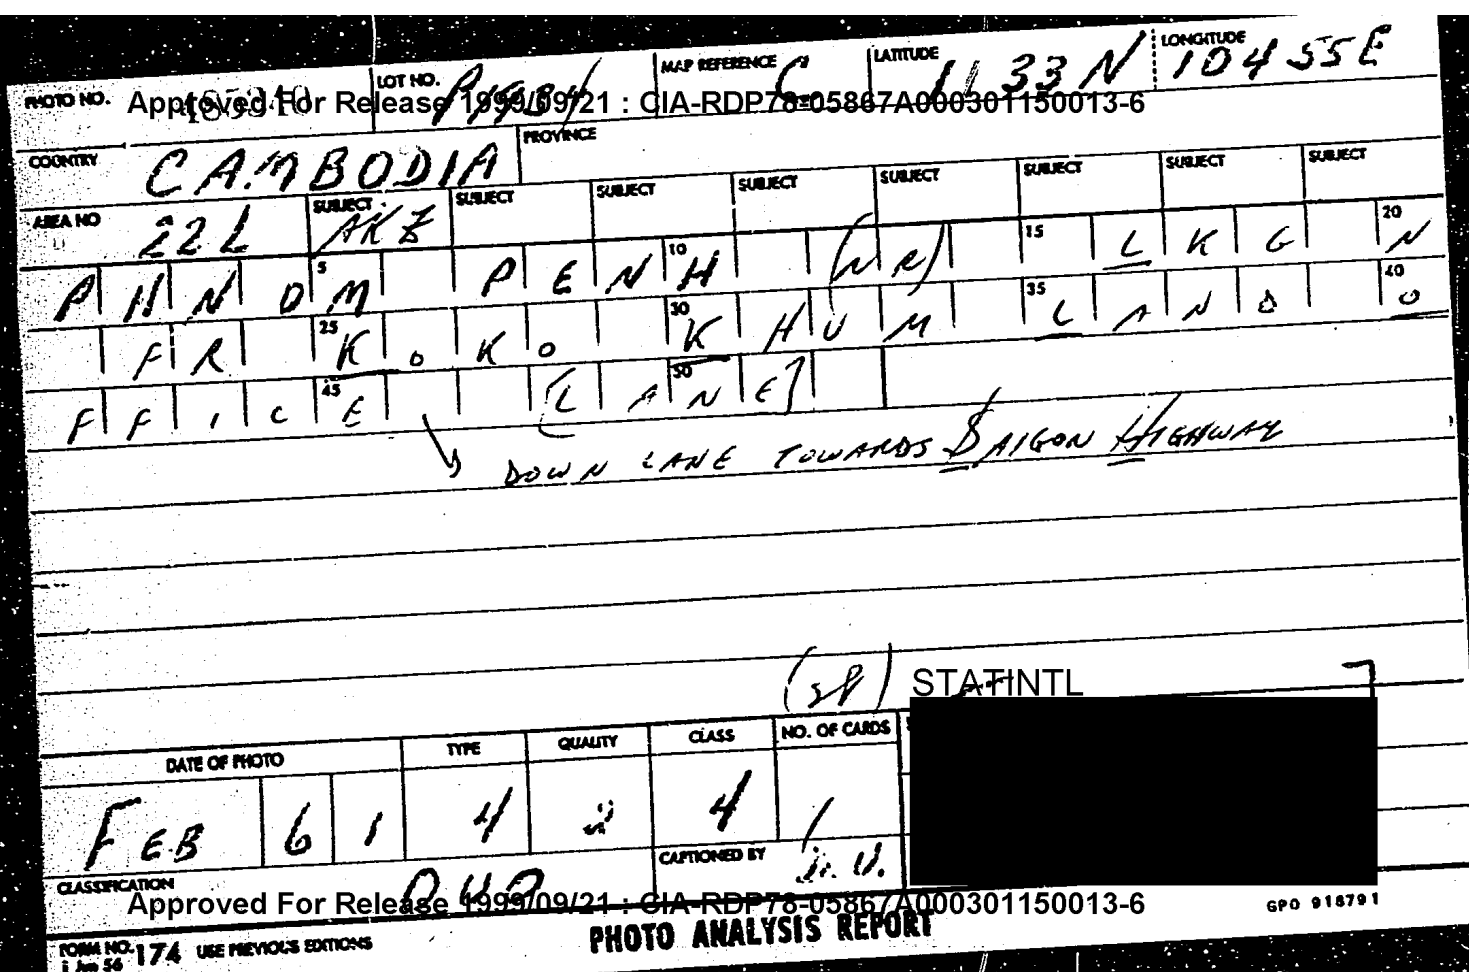 PHOTO NO. LOT NO. MAP REFERENCE C LATITUDE 11 33 N LONGITUDE 104 55 E
Approved For Release 1999/09/21 : CIA-RDP78-05867A000301150013-6
COUNTRY CAMBODIA PROVINCE
AREA NO 22L SUBJECT AKZ SUBJECT SUBJECT SUBJECT SUBJECT SUBJECT SUBJECT SUBJECT
5 10 15 20
PHNOM PENH (NR) LKG N
25 30 35 40
FR K.KO KHUM LAND O
45 50
FFICE [LANE]
DOWN LANE TOWARDS SAIGON HIGHWAY
(SP) STATINTL
DATE OF PHOTO TYPE QUALITY CLASS NO. OF CARDS
FEB 6 1 4 2 4 1
CAPTIONED BY
CLASSIFICATION
Approved For Release 1999/09/21 : CIA-RDP78-05867A000301150013-6
GPO 918791
FORM NO. 174 USE PREVIOUS EDITIONS PHOTO ANALYSIS REPORT
1 Jun 56